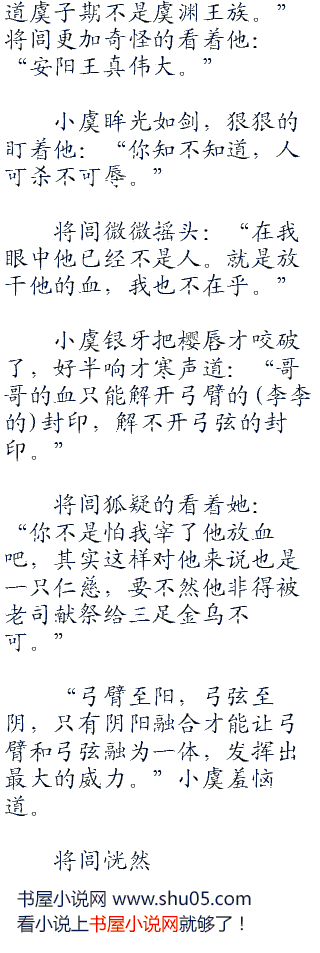 道虞子期不是虞渊王族。”
将闾更加奇怪的看着他：
“安阳王真伟大。”
小虞眸光如剑，狠狠的
盯着他：“你知不知道，人
可杀不可辱。”
将闾微微摇头：“在我
眼中他已经不是人。就是放
干他的血，我也不在乎。”
小虞银牙把樱唇才咬破
了，好半响才寒声道：“哥
哥的血只能解开弓臂的(李李
的)封印，解不开弓弦的封
印。”
将闾狐疑的看着她：
“你不是怕我宰了他放血
吧，其实这样对他来说也是
一只仁慈，要不然他非得被
老司献祭给三足金乌不
可。”
“弓臂至阳，弓弦至
阴，只有阴阳融合才能让弓
臂和弓弦融为一体，发挥出
最大的威力。”小虞羞恼
道。
将闾恍然
书屋小说网 www.shu05.com
看小说上书屋小说网就够了！